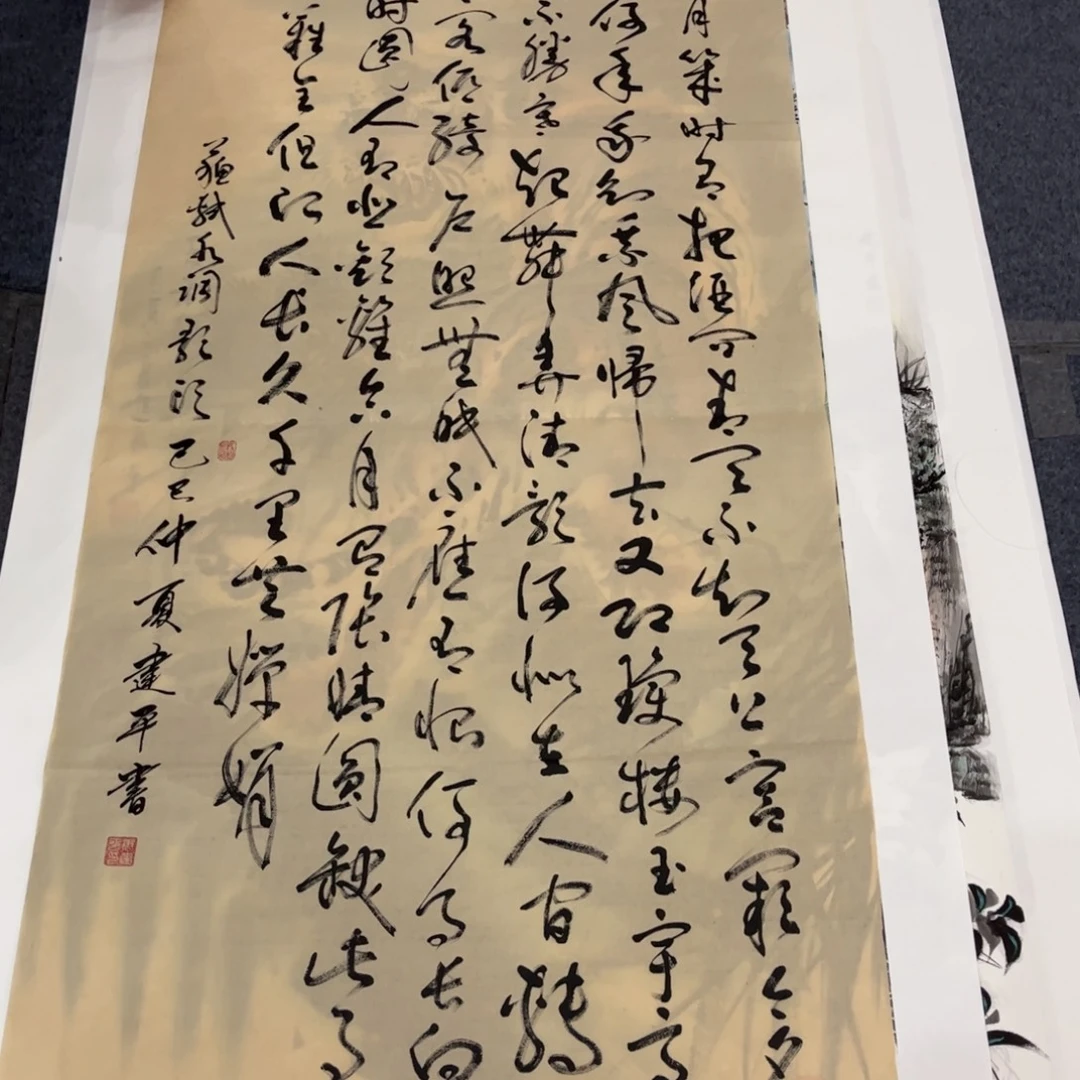 月幾时有把酒问青天不知天上宫阙今夕
何年我欲乘风歸去又恐瓊楼玉宇高
不勝寒起舞弄清影何似在人间轉
阁低綺户照無眠不應有恨何事長向
时圆人有悲歡離合月有陰晴圓缺此事
難全但願人長久千里共嬋娟
蘇軾水调歌頭己巳仲夏建平書